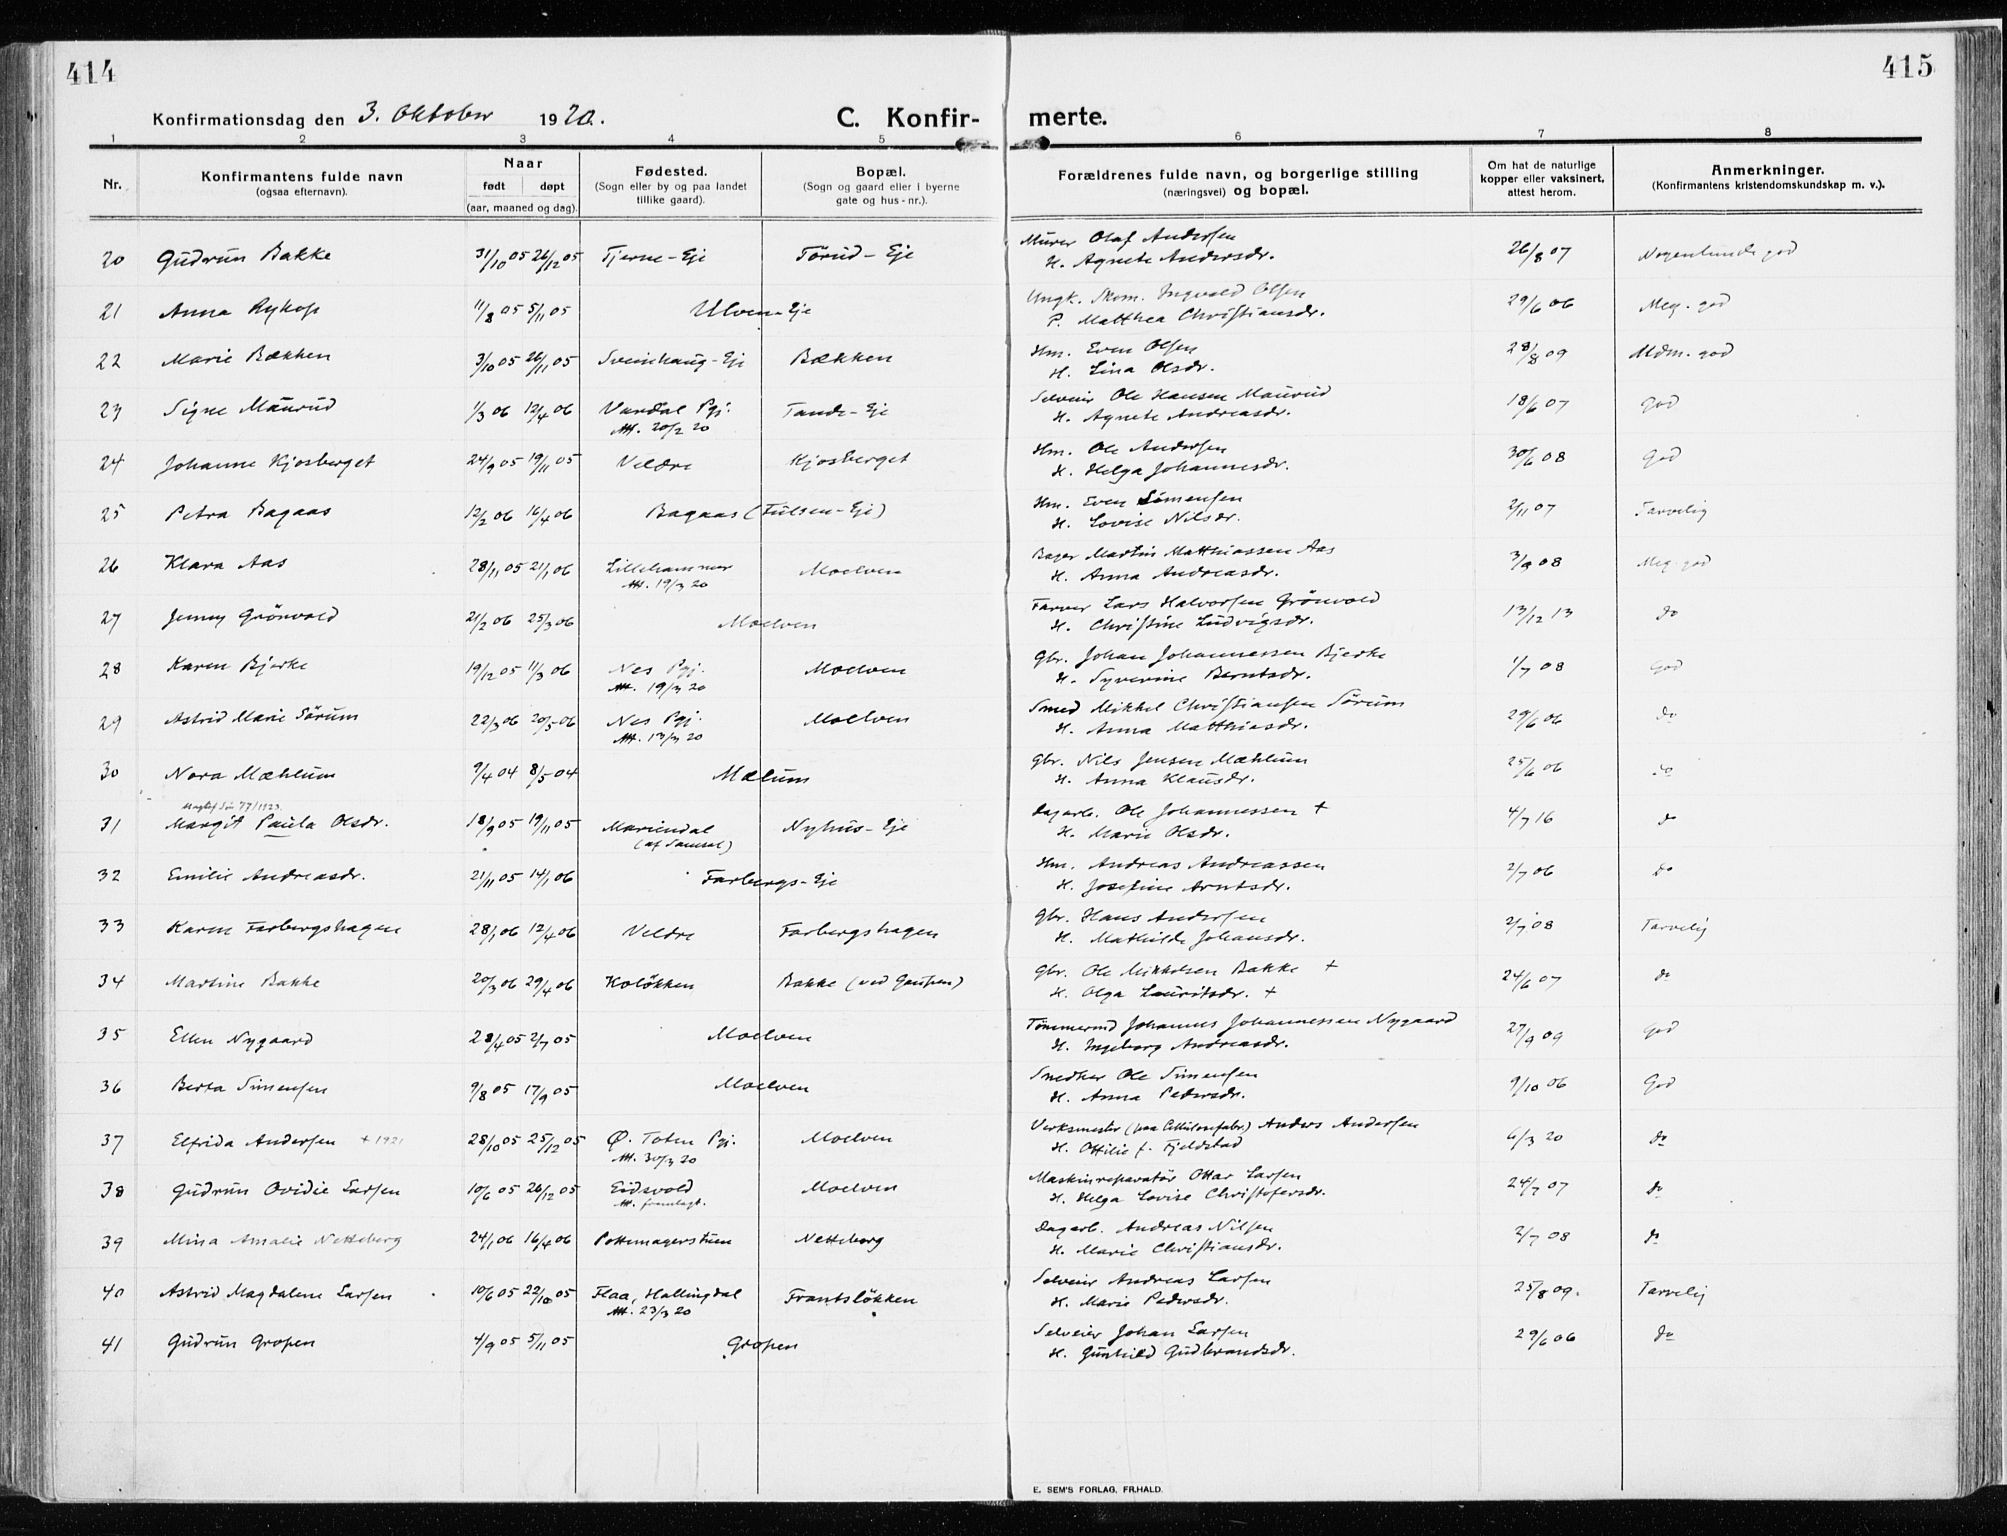 414
415
Konfirmationsdag den 3. Oktober 1920.
C. Konfir-
merte.
1 2 3 4 5 6 7 8
Nr.
Konfirmantens fulde navn
(ogsaa efternavn).
Naar
født døpt
(aar, maaned og dag).
Fødested.
(Sogn eller by og paa landet
tillike gaard).
Bopæl.
(Sogn og gaard eller i byerne
gate og hus-nr.).
Forældrenes fulde navn, og borgerlige stilling
(næringsvei) og bopæl.
Om hat de naturlige
kopper eller vaksinert,
attest herom.
Anmerkninger.
(Konfirmantens kristendomskundskap m. v.).
20 Gudrun Bakke 31/10 05 26/12 05 Tjerne-Eje Tørud-Eje Murer Olaf Andersen 26/8 07 Nogenlunde god
H. Agnete Andersdr.
21 Anna Rykop 11/8 05 5/11 05 Ulven-Eje Ungk. Skom. Ingvald Olsen 29/6 06 Meg. god
P. Matthea Christiansdr.
22 Marie Bækken 3/10 05 26/11 05 Sveinhaug-Eje Bækken Hm. Even Olsen 28/8 09 Mdm. god
H. Lina Olsdr.
23 Signe Maurud 1/3 06 12/4 06 Vardal Pgj. Tande-Eje Selveier Ole Hansen Maurud 18/6 07 God
Att. 20/2 20 H. Agnete Andreasdr.
24 Johanne Kjosberget 24/9 05 19/11 05 Veldre Kjosberget Hm. Ole Andersen 30/6 08 God
H. Helga Johannesdr.
25 Petra Bagaas 12/2 06 16/4 06 Bagaas (Fulsen-Eje) Hm. Even Simensen 2/11 07 Tarvelig
H. Lovise Nilsdr.
26 Klara Aas 28/11 05 21/1 06 Lillehammer Moelven Bager Martin Matthiassen Aas 3/9 08 Meg. god
Att. 19/3 20 H. Anna Andreasdr.
27 Jenny Grönvold 21/2 06 25/3 06 Moelven Farver Lars Halvorsen Grönvold 13/12 13 do
H. Christine Ludvigsdr.
28 Karen Bjerke 19/12 05 11/3 06 Nes Pgj. Moelven Gbr. Johan Johannessen Bjerke 1/7 08 God
Att. 19/3 20 H. Syverine Berntsdr.
29 Astrid Marie Sörum 22/3 06 20/5 06 Nes Pgj. Moelven Smed Mikkel Christiansen Sörum 29/6 06 do
Att. 13/3 20 H. Anna Matthiasdr.
30 Nora Mæhlum 9/4 04 8/5 04 Mælum Gbr. Nils Jensen Mæhlum 25/6 06 do
H. Anna Klausdr.
31 Margit Paula Olsdr. 18/9 05 19/11 05 Mariendal Nyhus-Eje Dagarb. Ole Johannessen + 4/7 16 do
(af Samsal) H. Marie Olsdr.
32 Emilie Andreasdr. 21/11 05 14/1 06 Farbergs-Eje Hm. Andreas Andreassen 2/7 06 do
H. Josefine Arntsdr.
33 Karen Farbergshagen 28/1 06 12/4 06 Veldre Farbergshagen Gbr. Hans Andersen 2/7 08 Tarvelig
H. Mathilde Johansdr.
34 Martine Bakke 20/3 06 29/4 06 Koløkken Bakke (ved Gaupen) Gbr. Ole Mikkelsen Bakke + 24/6 07 do
H. Olga Lauritsdr. +
35 Ellen Nygaard 28/4 05 2/7 05 Moelven Tömmermd Johannes Johannessen Nygaard 27/9 09 God
H. Ingeborg Andreasdr.
36 Berta Simensen 9/8 05 17/9 05 Moelven Snedker Ole Simensen 9/10 06 God
H. Anna Pedersdr.
37 Elfrida Andersen + 1921 28/10 05 25/12 05 Ø. Toten Pgj. Moelven Verksmester Anders Andersen 6/3 20 do
Att. 30/3 20 H. Ottilie f. Fjeldstad
38 Gudrun Ovidie Larsen 10/6 05 26/12 05 Eidsvold Moelven Maskinreparatör Ottar Larsen 24/7 07 do
Att. fremlagt. H. Helga Lovise Christofersdr.
39 Mina Amalie Netteberg 24/1 06 16/4 06 Pottemagerstuen Netteberg Dagarb. Andreas Nilsen 2/7 08 do
H. Marie Christiansdr.
40 Astrid Magdalene Larsen 10/6 05 22/10 05 Flaa, Hallingdal Frantsløkken Selveier Andreas Larsen 25/8 09. Tarvelig
Att. 23/3 20 H. Marie Pedersdr.
41 Gudrun Gropen 4/9 05 5/11 05 Gropen Selveier Johan Larsen 29/6 06 do
H. Gunhild Gudbrandsdr.
E. SEM'S FORLAG, FR.HALD.